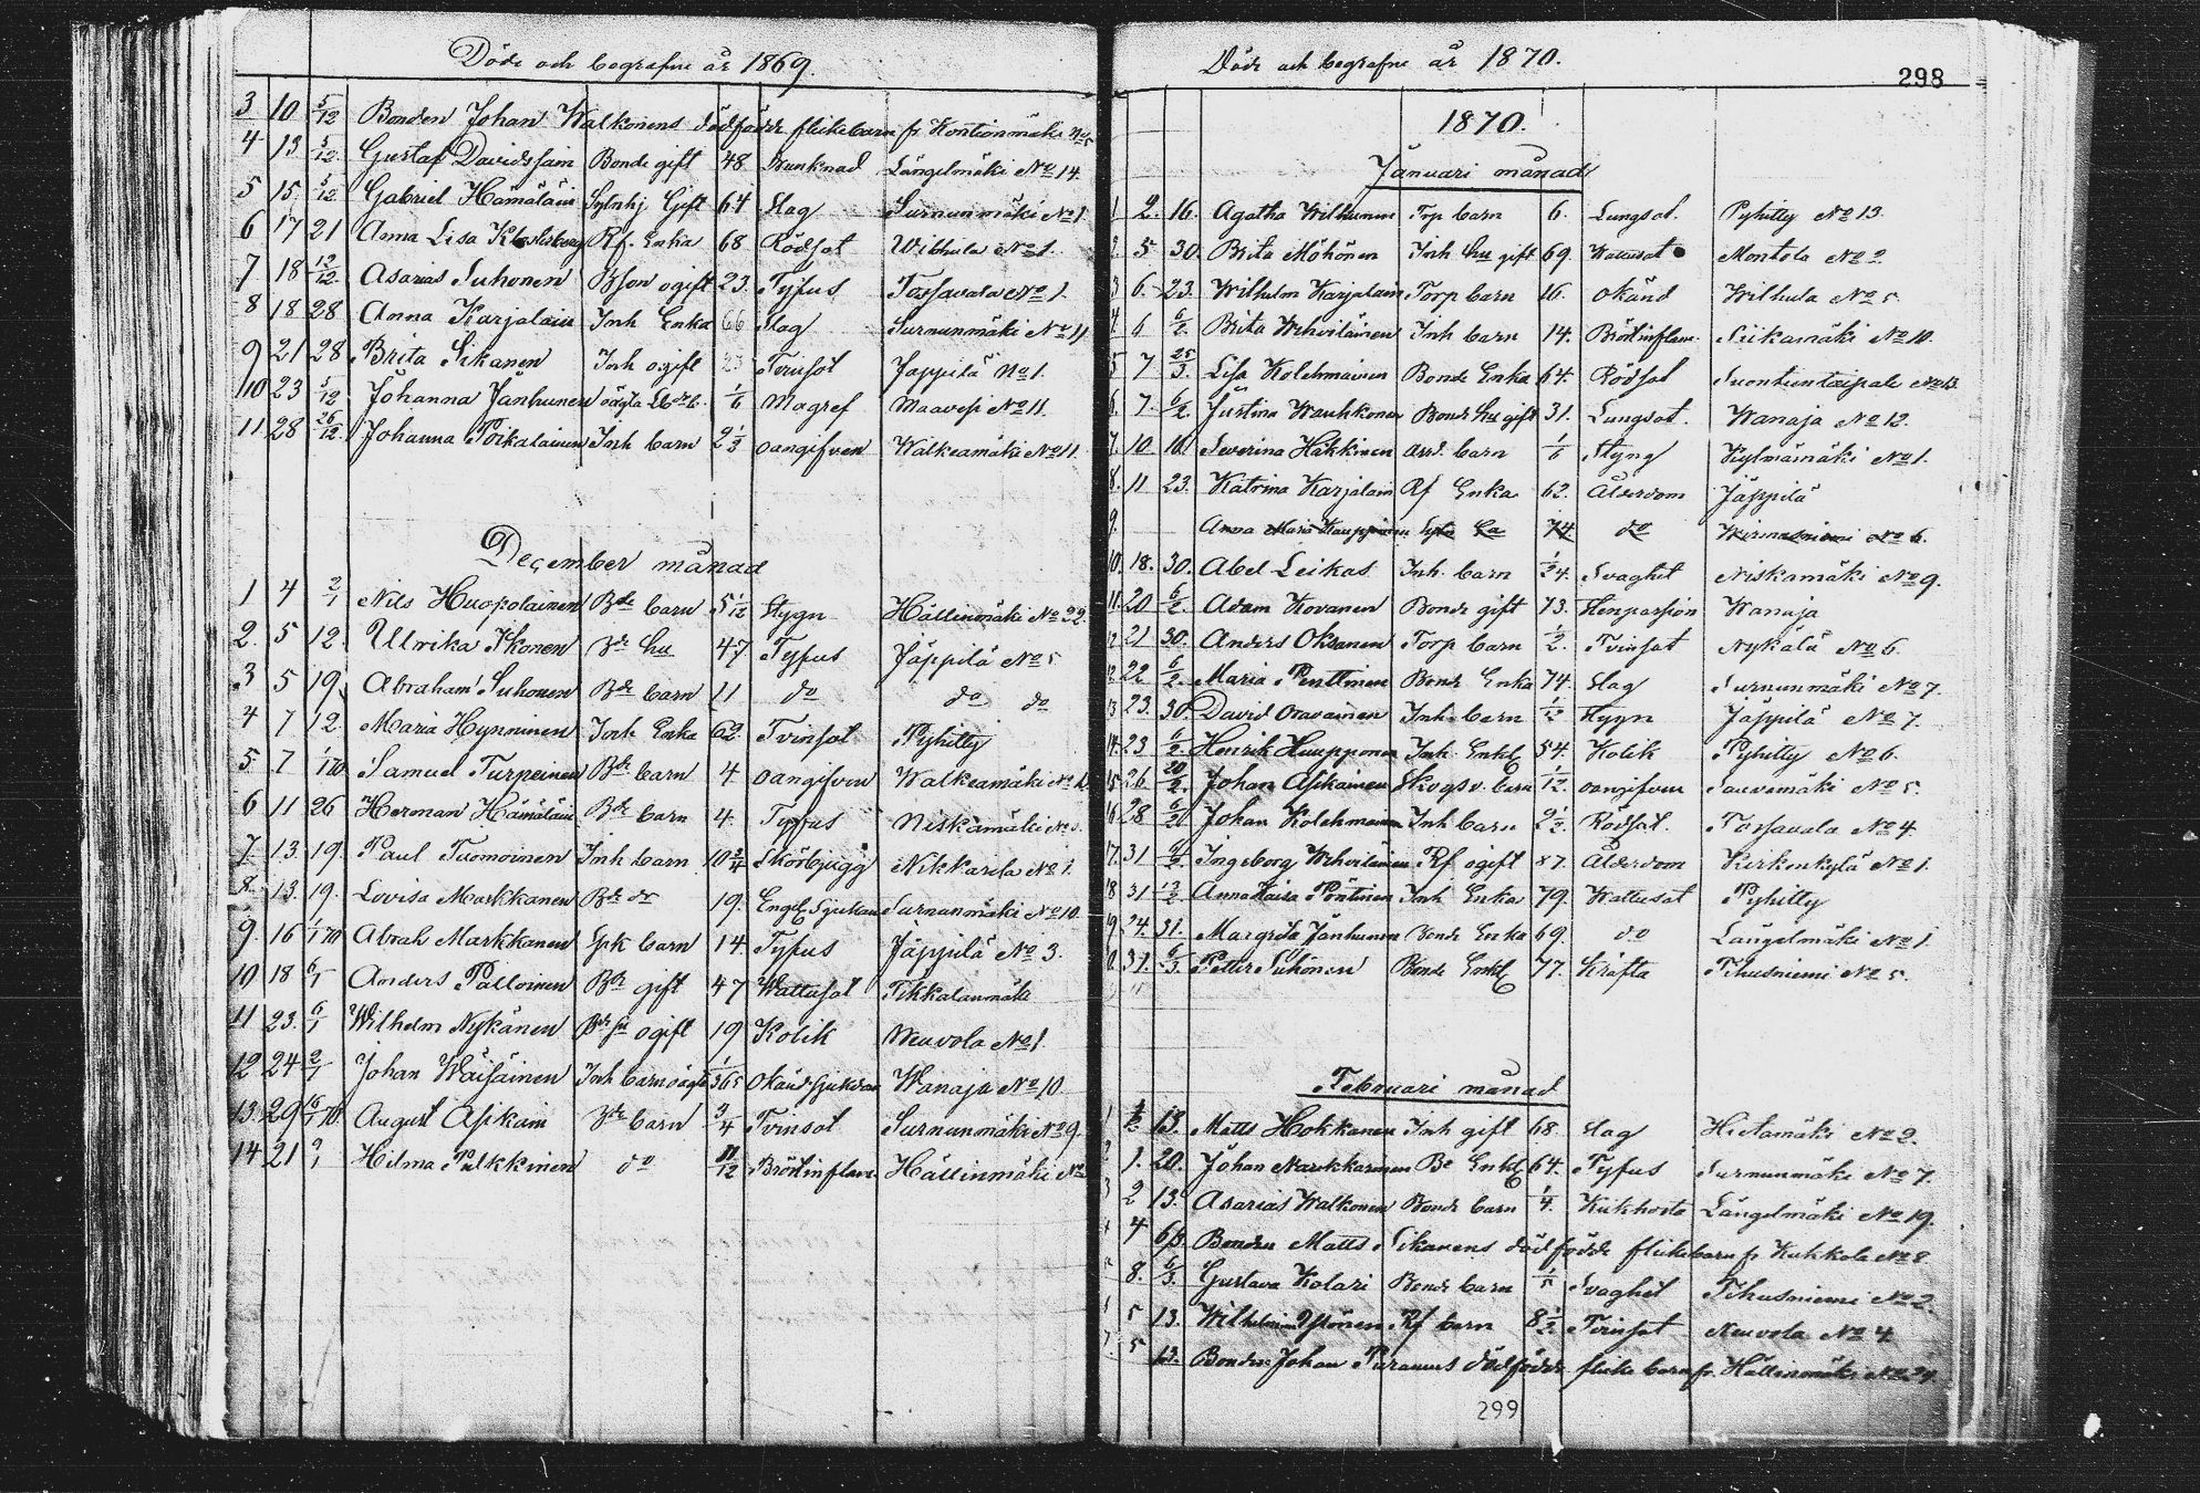 Döde och begrafne år 1869.
3 10 5/12 Bonden Johan Walkonens dödfödde flickebarn fr Kontionmäki No 5
4 13 5/12 Gustaf Davidsson Bonde gift 48 Drunknad Längelmäki No 14.
5 15 5/12 Gabriel Hämäläin Sytnhj Gift 64 Slag Surnunmäki No 1
6 17 21 Anna Lisa Rf. Enka 68 Rödsot Wihula No 1.
7 18 12/12 Asarias Suhonen Bson ogift 23. Tyfus Tossavala No 1.
8 18 28 Anna Karjalain Inh Enka 66 Slag Surnunmäki No 11
9 21 28 Brita Sikanen Inh ogift 23 Tvinsot Jäppilä No 1.
10 23 5/12 Johanna Jänhunen oägta 1/6 Magref Maavesi No 11.
11. 28 26/12 Johanna Poikalainen Inh barn 2 1/2 oangifven Walkeamäki No 11
December månad
1 4 2/1 Nils Huopolainen Bde barn 5 1/12 Stygn Hällinmäki No 22.
2. 5 12. Ulrika Ikonen Bde hu 47 Tyfus Jäppilä No 5
3 5 19. Abraham Suhonen Bde barn 11 do do do
4 7 12. Maria Hynninen Inh Enka 62. Tvinsot Pyhitty
5 7 1/1 70 Samuel Turpeinen Bde barn 4. oangifven Walkeamäki No
6 11 26 Herman Hämäläin Bde barn 4. Tyfus Niskamäki No
7 13. 19. Paul Tuomoinen Inh barn 10 3/4 Skörbjugg Nikkarila No 1.
8. 13. 19. Lovisa Markkanen Bde do 19. Engl. Sjukan Surnunmäki No 10.
9. 16 1/1 70 Abrah Markkanen Spk barn 14. Tyfus Jäppilä No 3.
10 18 6/1 Anders Palloinen Bde gift 47 Wattusot Tikkalanmäki
11 23. 6/1 Wilhelm Nykänen Bde sn ogift 19 Kolik Neuvola No 1.
12 24 2/1 Johan Wäisäinen Inh barn oägt 1/365 Okänd sjukdom Wanaja No 10
13. 29 16/1 70. August Asikain Bde barn 3/4 Tvinsot Surnunmäki No 9.
14 21 9/1 Hilma Pulkkinen do 11/12 Bröstinflam. Hällinmäki No
Döde och begrafne år 1870.
298
1870.
Januari månad
1 2. 16. Agatha Wilhunen Trp barn 6. Lungsot. Pyhitty No 13.
2. 5 30. Brita Möhönen Inh hu gift 69. Wattusot Montola No 2
3 6. 23. Wilhelm Karjalain Torp barn 16. okänd Wilhula No 5.
4 6 6/2. Brita Wehviläinen Inh barn 14. Bröstinflam. Siikamäki No 10.
5 7 25/3. Lisa Kolehmainen Bonde Enka 64. Rödsot Suontientaipale No 13.
6. 7. 6/2. Justina Wauhkonen Bonde hu gift 31. Lungsot. Wanaja No 12.
7. 10 16 Severina Häkkinen barn 1/6 Styng Kylmämäki No 1.
8. 11 23. Katrina Karjalain Rf Enka 62. Ålderdom Jäppilä
9. Anna Maria Kauppinen 74. do No 6.
10. 18. 30. Abel Leikas Inh. barn 1/24. Svaghet Niskamäki No 9.
11. 20 6/2. Adam Kovanen Bonde gift 73. Stenpassion Wanaja
12 21 30. Anders Oksanen Torp barn 1/2. Tvinsot Nykälä No 6.
12 22 6/2. Maria Penttinen Bonde Enka 74. Slag Surnunmäki No 7.
13 23. 30. David Oravainen Inh. barn 1/12 Stygn Jäppilä No 7.
14. 23 6/2. Henrik Huupponen Inh. Enkl 54. Kolik Pyhitty No 6.
15 26 20/2. Johan Asikainen Skogsv. barn 1/12. oangifven Sauvamäki No 5.
16 28 6/2 Johan Kolehmainen Inh barn 2 1/2. Rödsot. Tossavala No 4.
17. 31 6/2. Ingeborg Wehviläinen Rf ogift 87. Ålderdom Kirkonkylä No 1.
18 31 13/2 Anna Kaisa Pöntinen Inh Enka 79. Wattusot Pyhitty
19 24. 31. Margreta Jänhunen Bonde Enka 69. do Längelmäki No 1.
31. 6/3. Petter Suhonen Bonde Enkl 77. Kräfta Tihusniemi No 5.
Februari månad
1 13. Matts Hokkanen Inh gift 68. Slag Hietamäki No 2.
2 1. 20. Johan Markkanen Be Enkl 64. Tyfus Surnunmäki No 7.
3 2 13. Asarias Walkonen Bonde barn 1/4. Kikhosta Längelmäki No 19.
4 4 6/3. Bonden Matts Sikanens dödfödde flickebarn fr. Kukkola No 8
8. 6/3. Gustava Kolari Bonde barn Svaghet Tihusniemi No 2.
5 13. Wilhelm Rf barn 8 1/2. Tvinsot Neuvola No 4
5 13. Bonden Johan Puranens dödfödde flicke barn fr. Hällinmäki No 24
299